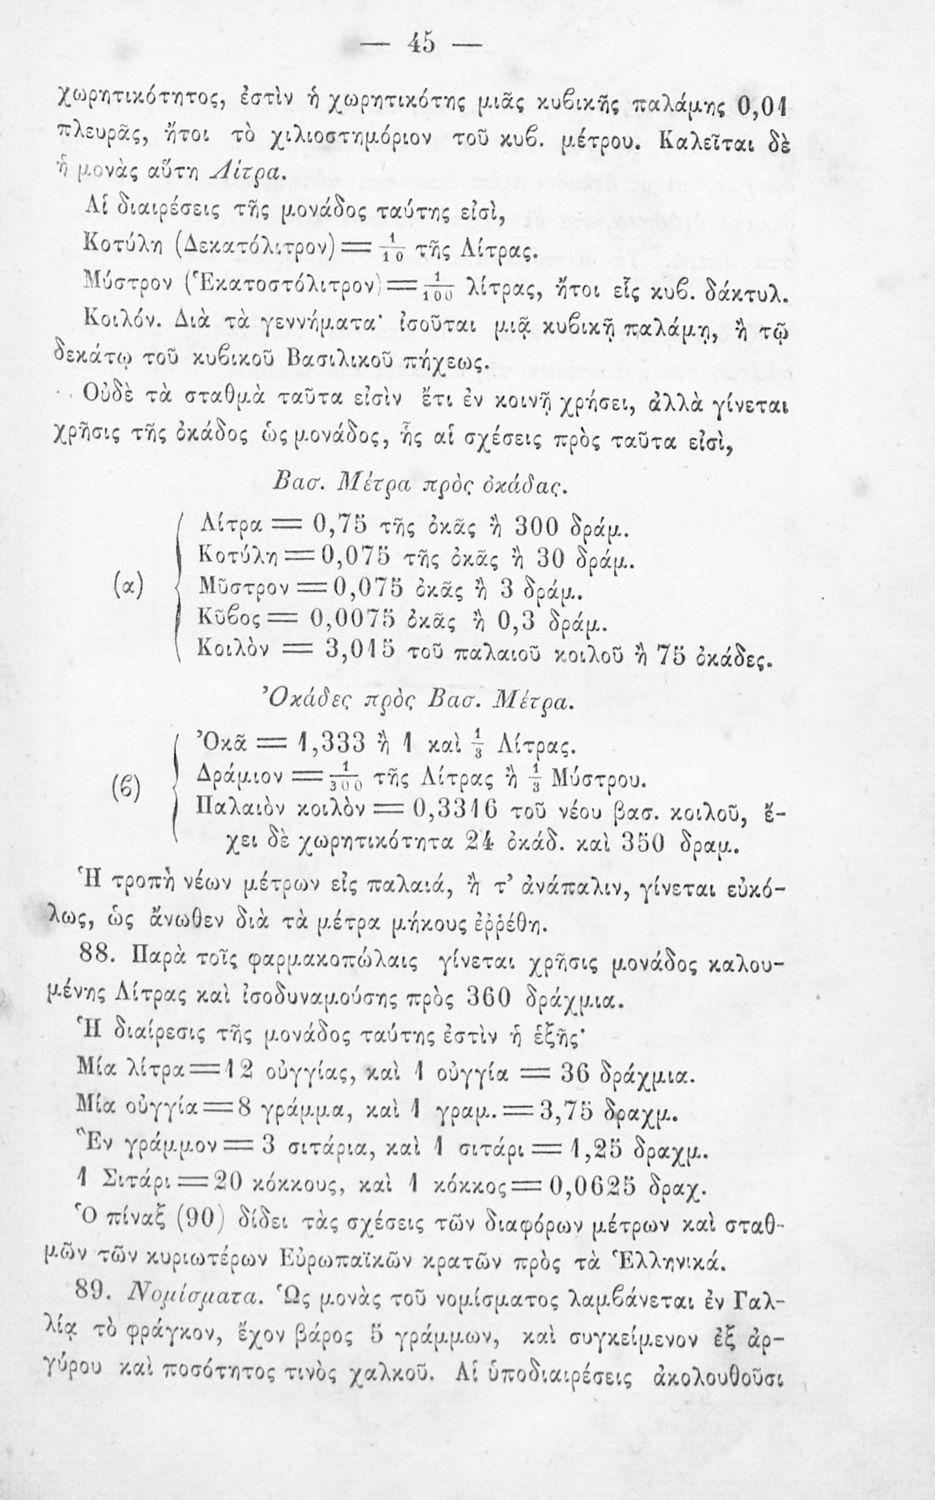 — 45 —
χωρητικότητος, ἐστὶν ἡ χωρητικότης μιᾶς κυϐικῆς παλάμης 0,01
πλευρᾶς, ἤτοι τὸ χιλιοστημόριον τοῦ κυϐ. μέτρου. Καλεῖται δὲ
ἡ μονὰς αὕτη Λίτρα.
Αἱ διαιρέσεις τῆς μονάδος ταύτης εἰσὶ,
Κοτύλη (Δεκατόλιτρον) = 1/10 τῆς Λίτρας.
Μύστρον (Ἑκατοστόλιτρον) = 1/100 λίτρας, ἤτοι εἷς κυϐ. δάκτυλ.
Κοιλόν. Διὰ τὰ γεννήματα· ἰσοῦται μιᾷ κυϐικῇ παλάμῃ, ἢ τῷ
δεκάτῳ τοῦ κυϐικοῦ Βασιλικοῦ πήχεως.
Οὐδὲ τὰ σταθμὰ ταῦτα εἰσὶν ἔτι ἐν κοινῇ χρήσει, ἀλλὰ γίνεται
χρῆσις τῆς ὀκάδος ὡς μονάδος, ἧς αἱ σχέσεις πρὸς ταῦτα εἰσὶ,
Βασ. Μέτρα πρὸς ὀκάδας.
Λίτρα = 0,75 τῆς ὀκᾶς ἢ 300 δράμ.
Κοτύλη = 0,075 τῆς ὀκᾶς ἢ 30 δράμ.
(α) Μῦστρον = 0,075 ὀκᾶς ἢ 3 δράμ.
Κῦϐος = 0,0075 ὀκᾶς ἢ 0,3 δράμ.
Κοιλὸν = 3,015 τοῦ παλαιοῦ κοιλοῦ ἢ 75 ὀκάδες.
Ὀκάδες πρὸς Βασ. Μέτρα.
Ὀκᾶ = 1,333 ἢ 1 καὶ 1/3 Λίτρας.
(ϐ) Δράμιον = 1/300 τῆς Λίτρας ἢ 1/3 Μύστρου.
Παλαιὸν κοιλὸν = 0,3316 τοῦ νέου βασ. κοιλοῦ, ἔ-
χει δὲ χωρητικότητα 24 ὀκάδ. καὶ 350 δραμ.
Ἡ τροπὴ νέων μέτρων εἰς παλαιά, ἢ τ’ ἀνάπαλιν, γίνεται εὐκό-
λως, ὡς ἄνωθεν διὰ τὰ μέτρα μήκους ἐῤῥέθη.
88. Παρὰ τοῖς φαρμακοπώλαις γίνεται χρῆσις μονάδος καλου-
μένης Λίτρας καὶ ἰσοδυναμούσης πρὸς 360 δράχμια.
Ἡ διαίρεσις τῆς μονάδος ταύτης ἐστὶν ἡ ἑξῆς·
Μία λίτρα = 12 οὐγγίας, καὶ 1 οὐγγία = 36 δράχμια.
Μία οὐγγία = 8 γράμμα, καὶ 1 γραμ. = 3,75 δραχμ.
Ἓν γράμμον = 3 σιτάρια, καὶ 1 σιτάρι = 1,25 δραχμ.
1 Σιτάρι = 20 κόκκους, καὶ 1 κόκκος = 0,0625 δραχ.
Ὁ πίναξ (90) δίδει τὰς σχέσεις τῶν διαφόρων μέτρων καὶ σταθ-
μῶν τῶν κυριωτέρων Εὐρωπαϊκῶν κρατῶν πρὸς τὰ Ἑλληνικά.
89. Νομίσματα. Ὡς μονὰς τοῦ νομίσματος λαμϐάνεται ἐν Γαλ-
λίᾳ τὸ φράγκον, ἔχον βάρος 5 γράμμων, καὶ συγκείμενον ἐξ ἀρ-
γύρου καὶ ποσότητος τινὸς χαλκοῦ. Αἱ ὑποδιαιρέσεις ἀκολουθοῦσι